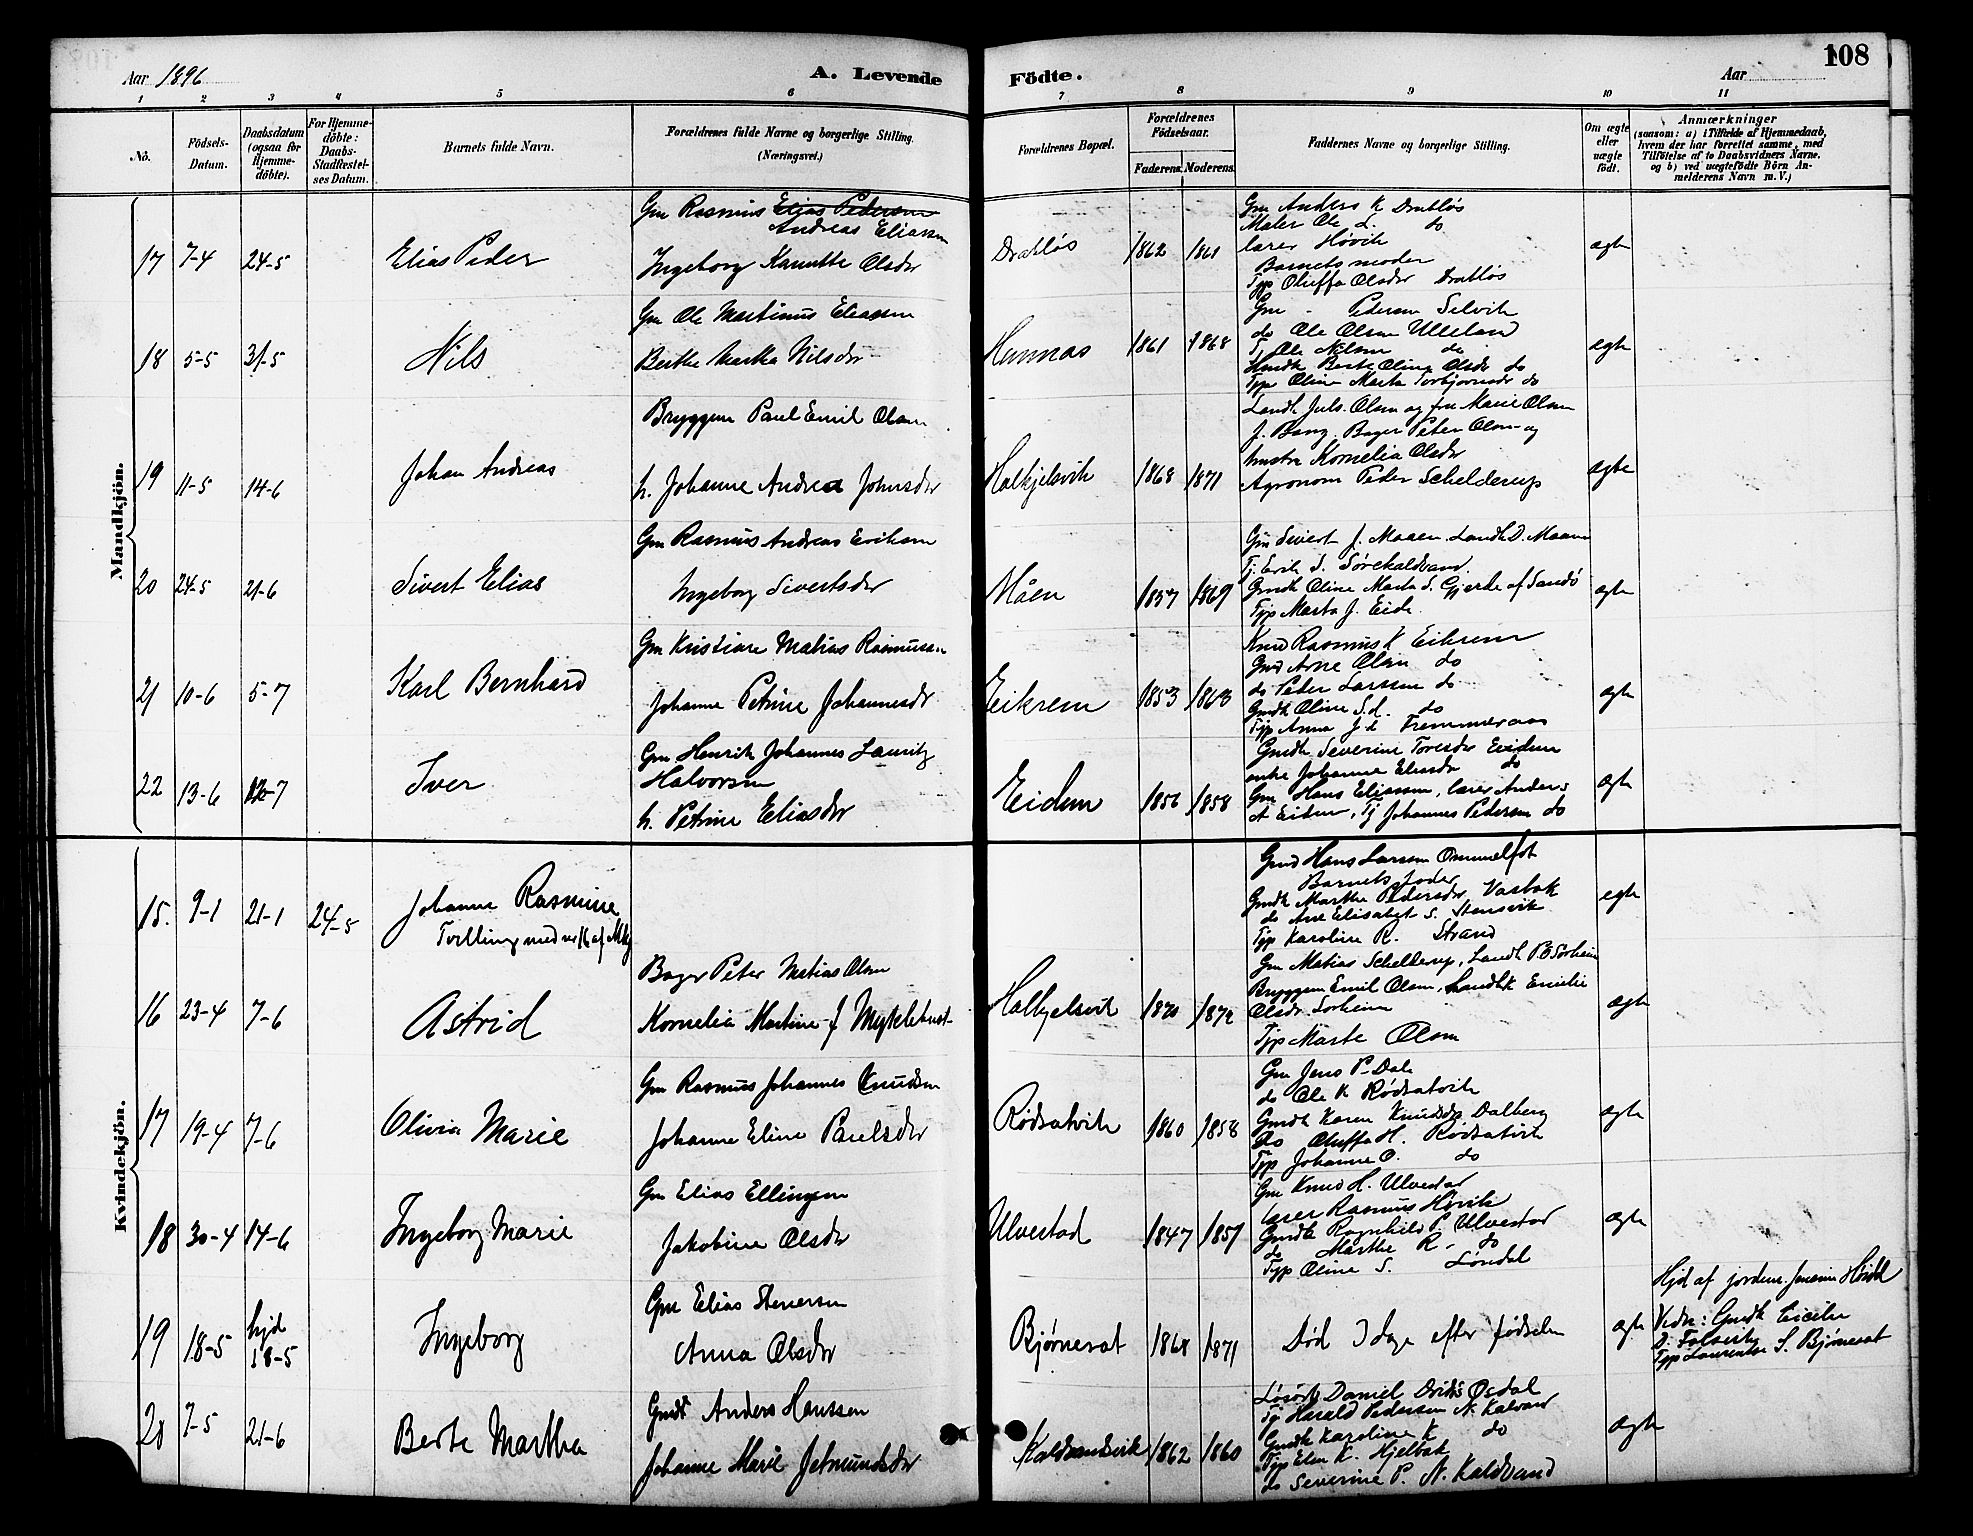 108
Aar 1896
A. Levende Födte.
Aar
1 2 3 4 5 6 7 8 9 10 11
No.
Födsels-Datum.
Daabsdatum (ogsaa for Hjemme-döbte).
For Hjemme-döbte: Daabs-Stadfæstel-ses Datum.
Barnets fulde Navn.
Forældrenes fulde Navne og borgerlige Stilling. (Næringsvei.)
Forældrenes Bopæl.
Forældrenes Födselsaar.
Faderens. Moderens.
Faddernes Navne og borgerlige Stilling.
Om ægte eller uægte födt.
Anmærkninger
(saasom: a) i Tilfælde af Hjemmedaab, hvem der har forrettet samme, med Tilföielse af to Daabsvidners Navne, og b) ved uægtefödte Börn Anmelderens Navn m. V.)
Mandkjön.
17 7-4 24-5 Elias Peder
Gm Rasmus Elias Pedersen
Andreas Eliassen
Ingeborg Kanutte Olsdr
Dratløs 1862 1861
Gm Anders K Dratløs
Maler Ole L. do
lærer Høvik
Barnets moder
Typ Oluffa Olsdr Dratløs
ægte
18 5-5 31-5 Nils
Gm Ole Martinus Eleasen
Berthe Marta Nilsdr
Hunnæs 1861 1868
Gm - Pedersen Selvik
do Ole Olsen Ulleland
Tj Ole Nilsen do
Gmdk Berte Oline Olsdr do
Typ Oline Marta Torbjørnsdr do
egte
19 11-5 14-6 Johan Andreas
Bryggem Paul Emil Olsen
h. Johanne Andrea Johnsdr
Halkjelsvik 1868 1871
Landh Juls. Olsen og fru Marie Olsen
f. Bang, Bager Peter Olsen og
hustru Kornelia Olsdr
Agronom Peder Schelderup
ægte
20 24-5 21-6 Sivert Elias
Gm Rasmus Andreas Eriksen
Ingeborg Sivertsdr
Måen 1857 1869
Gm Sivert J. Maaen. Landh D. Maaen
Tj. Erik S. Sørekaldvand.
Gmdk Oline Marta S. Gjerde af Sandö
Typ Marta J. Eide.
ægte
21 10-6 5-7 Karl Bernhard
Gm Kristian Matias Rasmussen
Johanne Petrine Johannesdr
Eikrem 1853 1863
Knud Rasmus K Eikrem
Gmd Arne Olsen do
do Peter Larssen do
Gmdk Oline S.d. do
Typ Anna J d Fremmeraas
ægte
22 13-6 -7 Iver
Gm Henrik Johannes Lauritz
Halvorsen
h. Petrine Eliasdr
Eidem 1856 1858
Gmdk Severine Toresdr Eidem
enke Johanne Eliasdr do
Gm Hans Eliassen, lærer Anders
A Eidem, Tj Johannes Pedersen do
ægte
Kvindekjön.
15. 9-1 21-1 24-5 Johanne Rasmine
Tvilling med nr 16 af Mkj
Gmd Hans Larsen Ommelfot
Barnets fader
Gmdk Marthe Pedersdr Vasbak
do Ane Elisabet S. Stensvik
Typ Karoline R. Strand
egte
16 23-4 7-6 Astrid
Bager Peter Matias Olsen
Kornelia Martine f Myklebust
Halkjelsvik 1870 1872
Gm Matias Schelderup, Landh P.O Sorheim
Bryggem Emil Olsen, Landhk Emilie
Olsdr Sorheim
Typ Marte Olsen
ægte
17 19-4 7-6 Olivia Marie
Gm Rasmus Johannes Knudsen
Johanne Eline Paulsdr
Rødsætvik 1860 1858
Gm Jens P. Dale
do Ole K Rødsætvik
Gmdk Karen Knudsdr Dalberg
do Oluffa H. Rødsætvik
Typ Johanne O. do
ægte
18 30-4 14-6 Ingeborg Marie
Gm Elias Ellingsen
Jakobine Olsdr
Ulvestad 1847 1857
Gm Knud H. Ulvestad
lærer Rasmus Høvik
Gmdk Ragnhild P. Ulvestad
do Marthe R. do
Typ Oline S. Løndal
ægte
19 18-5 hjd 18-5 Ingeborg
Gm Elias Stenersen
Anna Olsdr
Bjørneset 1868 1871
Død 3 dage efter fødselen
ægte
Hjd af jordem. Jensine Høidal
Vidn: Gmdk Cicilie
D. Folsvik,
Typ Laurentse S. Bjørneset
20 7-5 21-6 Berte Martha
Gmdr Anders Hanssen
Johanne Marie Jetmundsdr
Kaldvandsvik 1862 1860
Løsørk Daniel Driks Osdal
Tj Harald Pedersen N. Kalvand
Gmdk Karoline K do
Typ Elen K. Hjelbak
do Severine P. N. Kaldvand
ægte